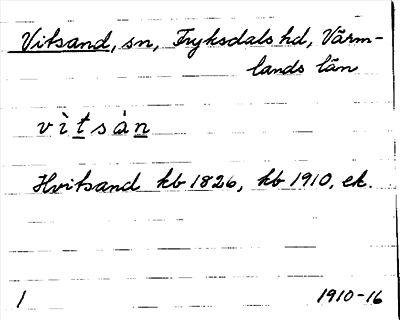 Vitsand, sn, Fryksdals hd, Värm-
lands län
vìtsàn
Hvitsand kb 1826, kb 1910, ek.
1 1910-16